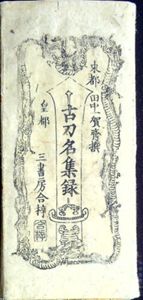 東都 田中一賀齋撰
古刀名集録
皇都 三書房合梓